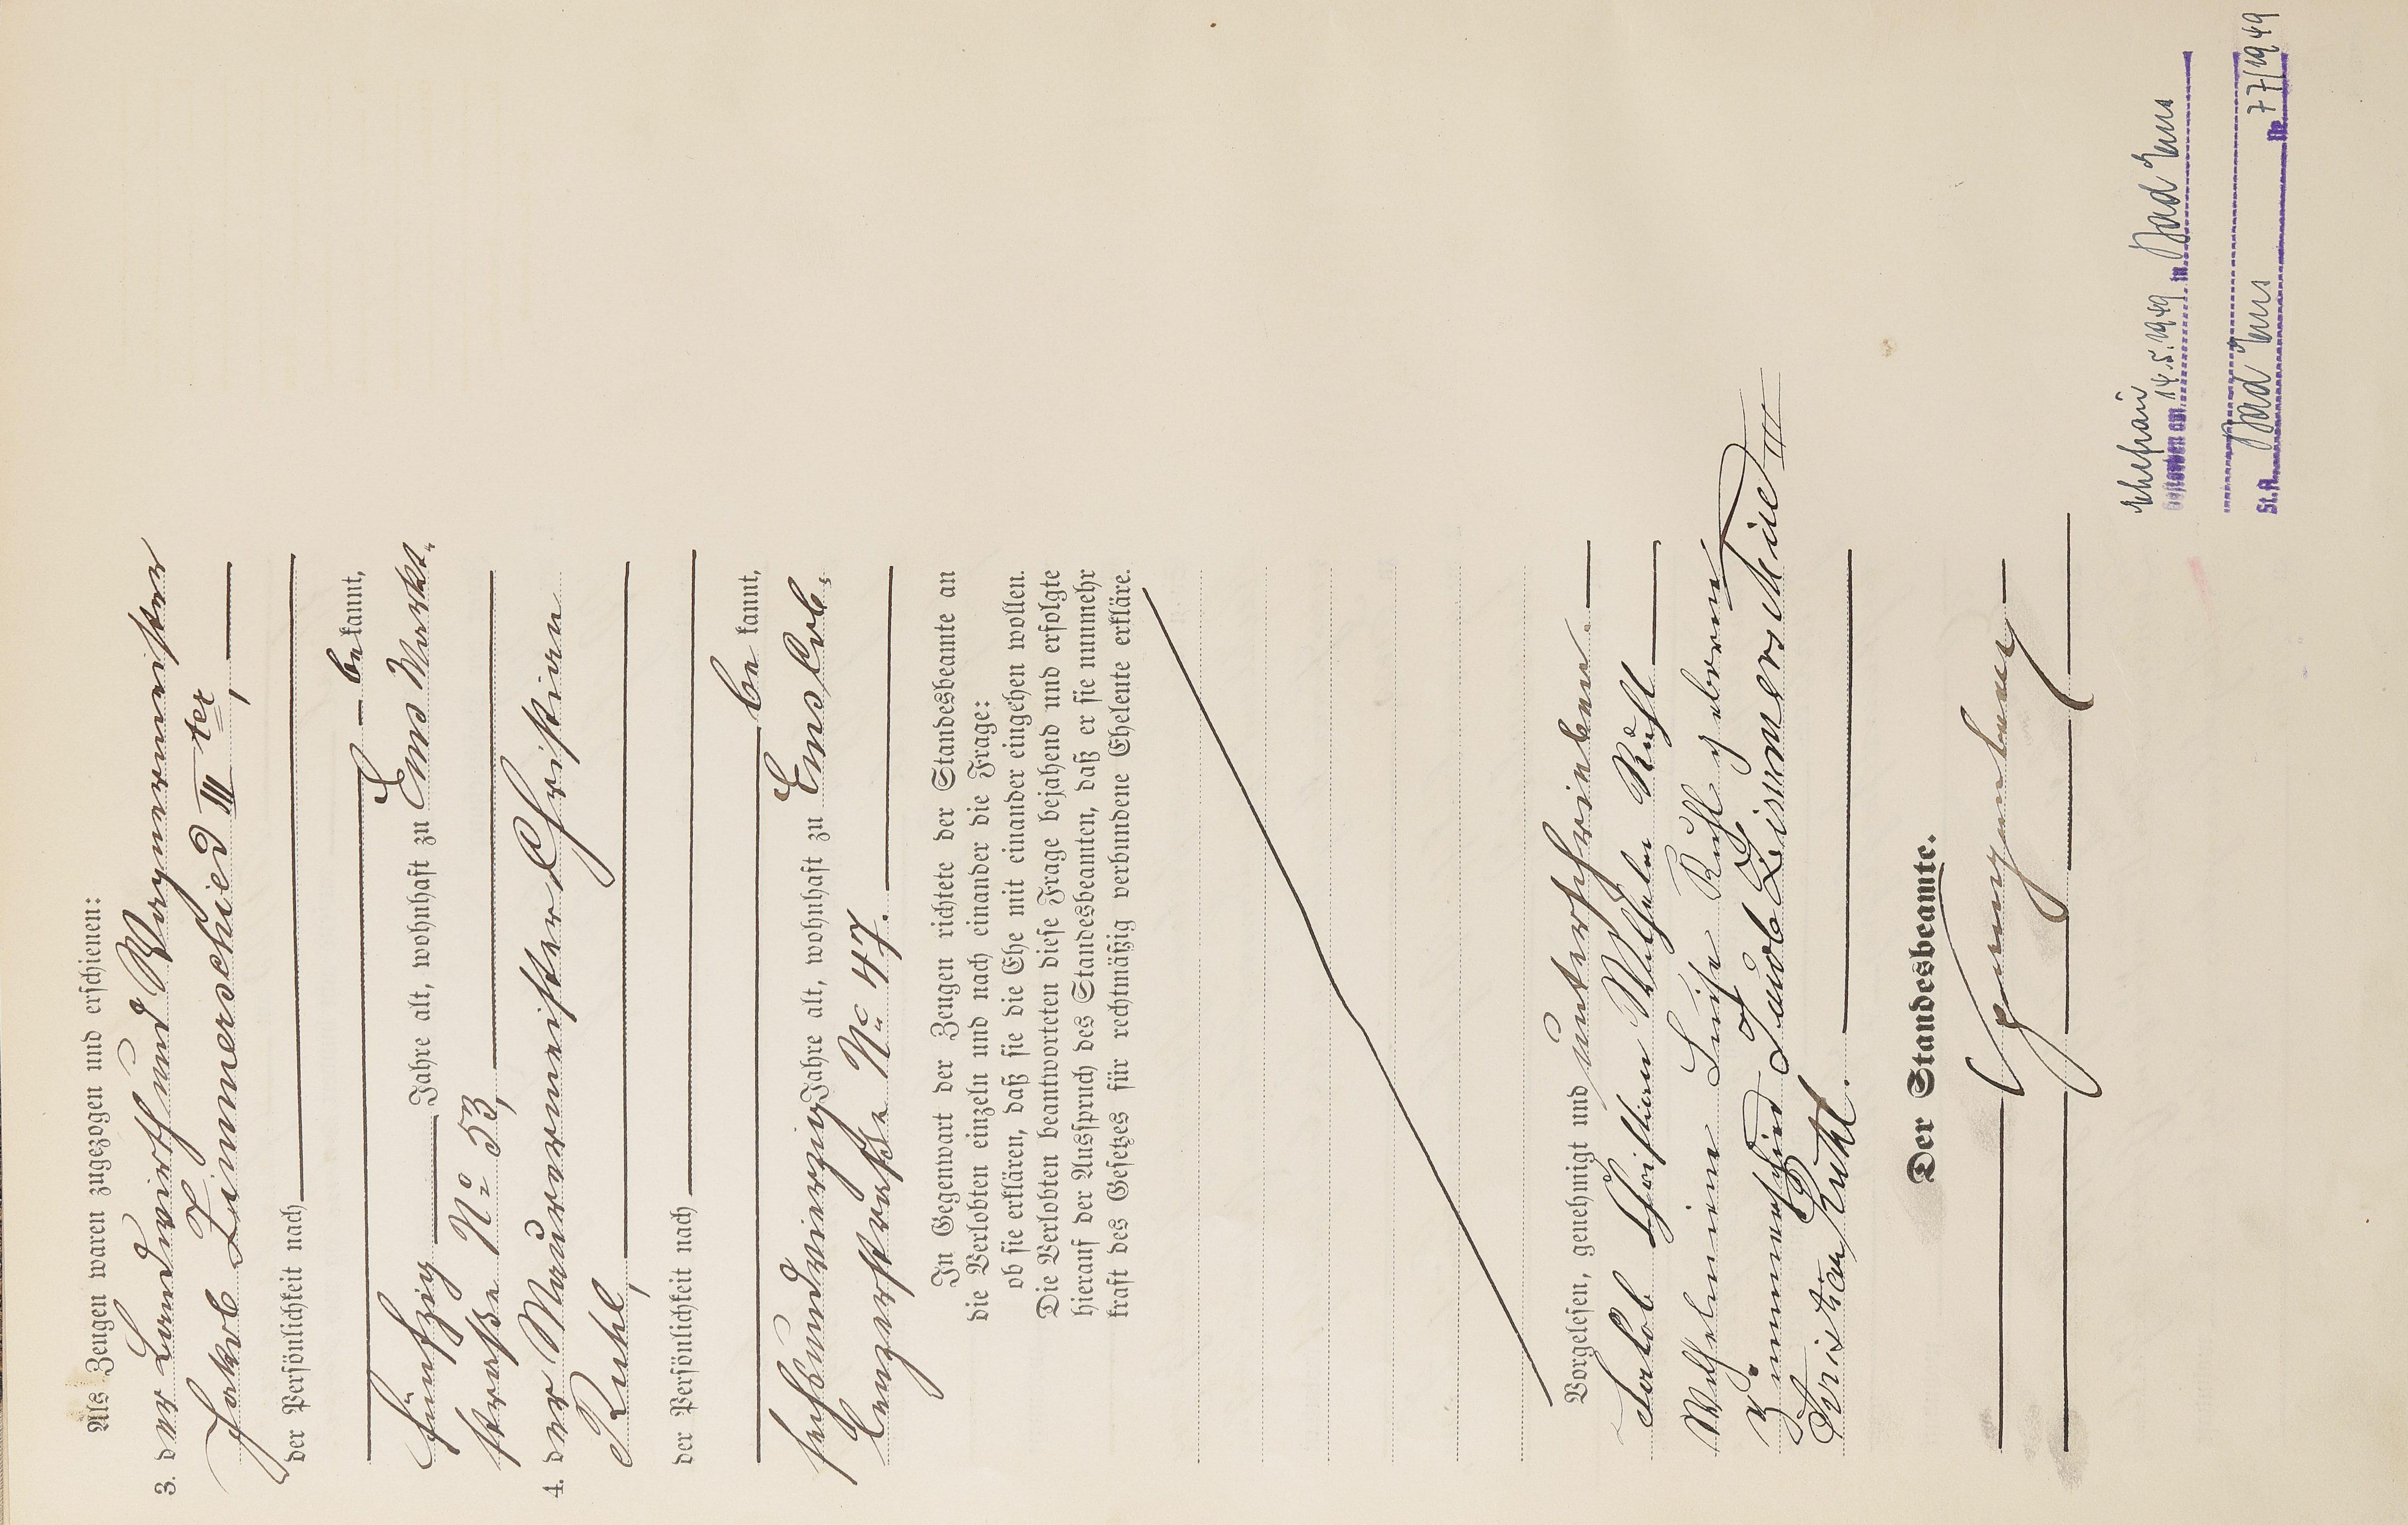 Als Zeugen waren zugezogen und erschienen:
3. der Landwirth und Wagnermeister
Jakob Zimmerschied III ter,
der Persönlichkeit nach
bekannt,
fünfzig Jahre alt, wohnhaft zu Ems Markt-
straße No 53,
4. der Maurermeister Christian
Ruhl,
der Persönlichkeit nach
be kannt,
sechsundvierzig Jahre alt, wohnhaft zu Ems Cob-
lenzerstraße No 47.
In Gegenwart der Zeugen richtete der Standesbeamte an
die Verlobten einzeln und nach einander die Frage:
ob sie erklären, daß sie die Ehe mit einander eingehen wollen.
Die Verlobten beantworteten diese Frage bejahend und erfolgte
hierauf der Ausspruch des Standesbeamten, daß er sie nunmehr
kraft des Gesetzes für rechtmäßig verbundene Eheleute erkläre.
Vorgelesen, genehmigt und unterschrieben.
Jakob Christian Wilhelm Ruhl
Wilhelmine Luise Ruhl geborene
Zimmerschied Jacob Zimmerschied III
Christian Ruhl.
Der Standesbeamte.
Ehefrau
gestorben am 14.5.1949 in Bad Ems
St. A. Bad Ems Nr. 77/1949